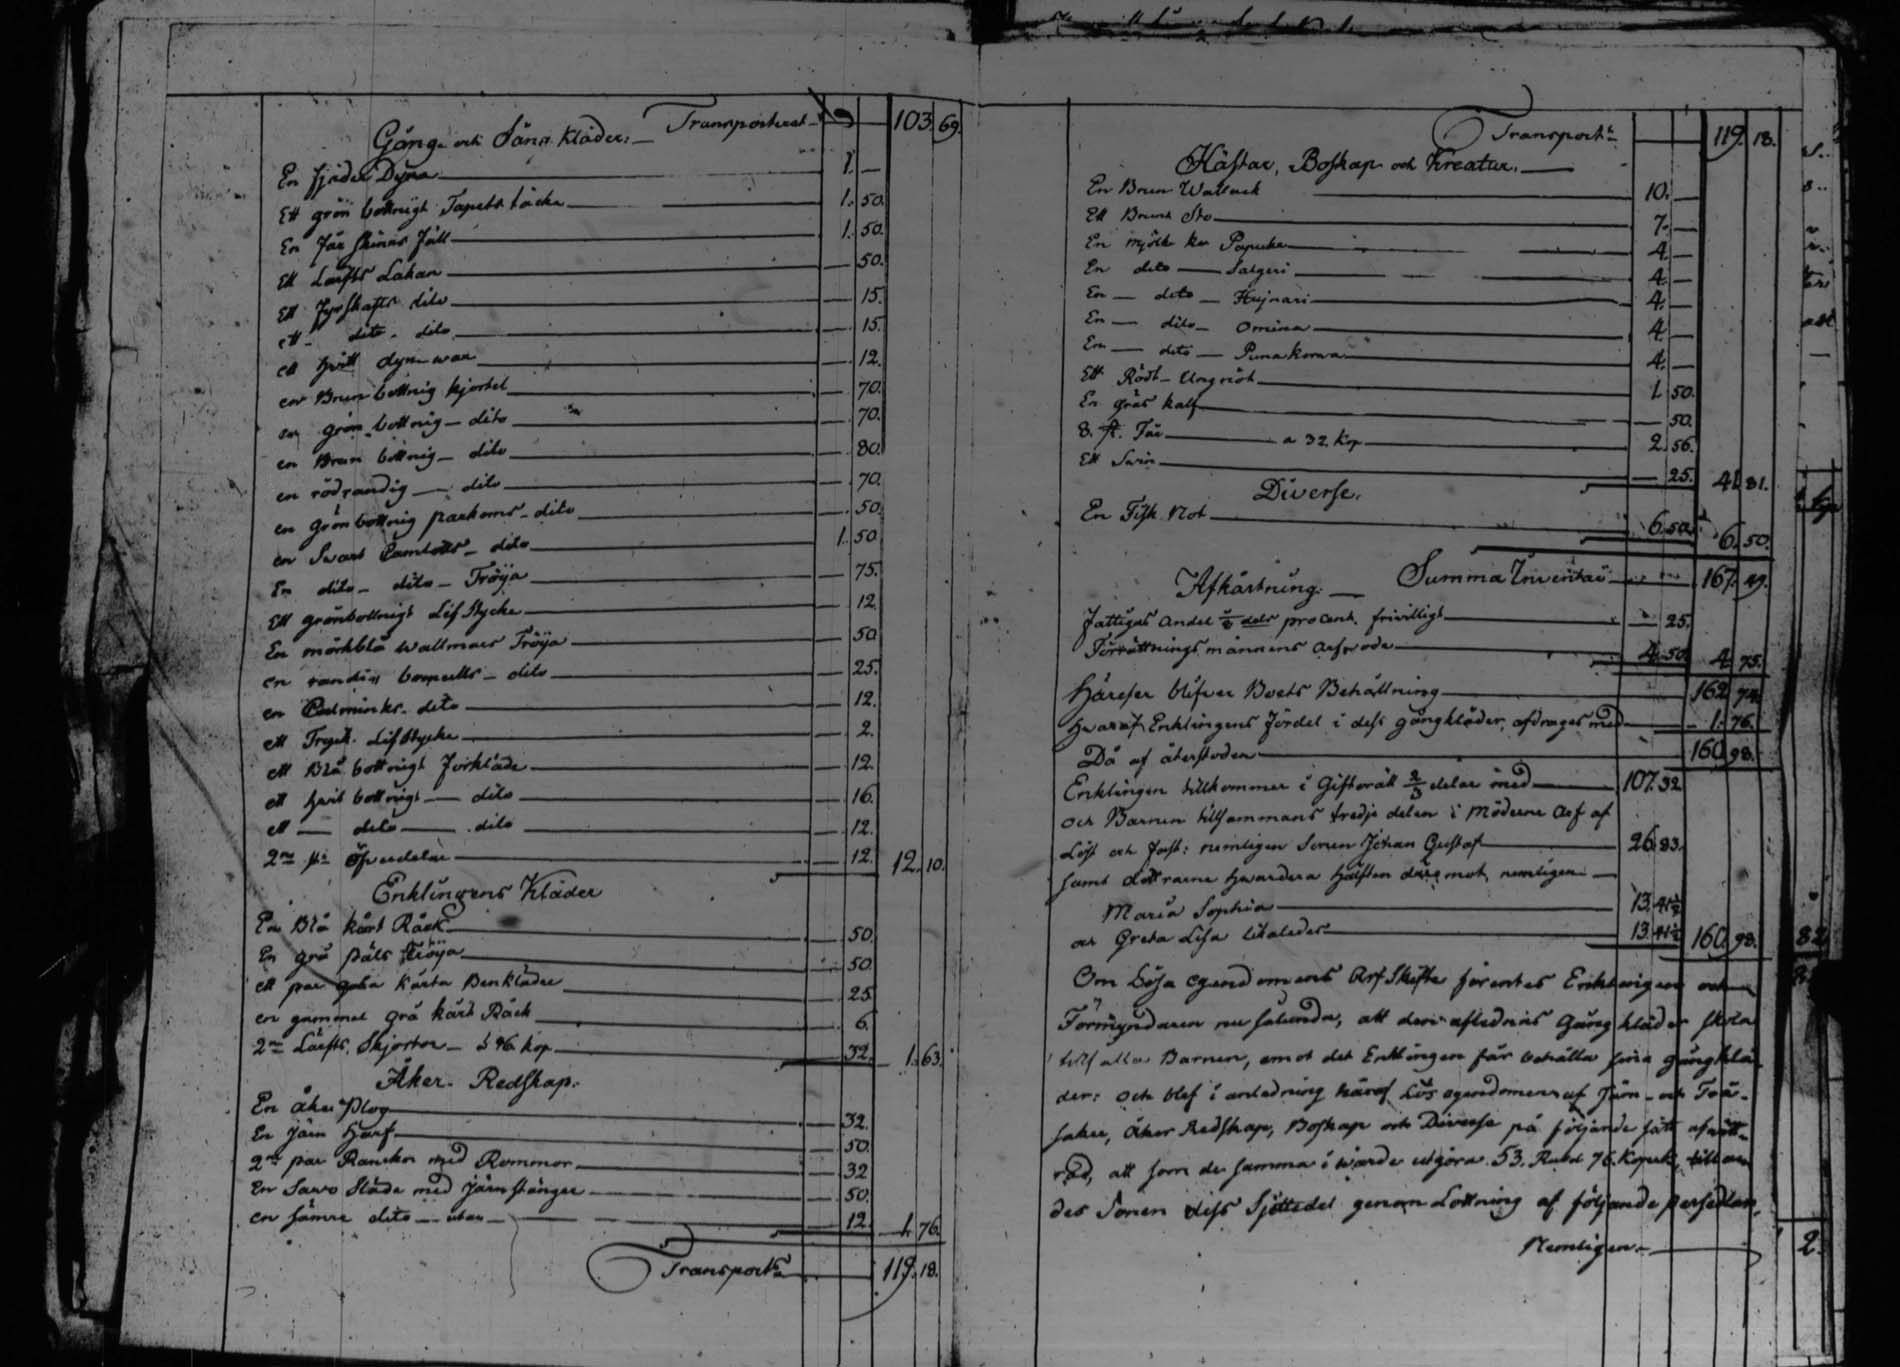 Transporterat 103. 69.
Gång- och Säng Kläder:
En fjäder Dyna 1. —
Ett grön bottnigt Tapets täcke 1. 50.
En Får skinns Fäll 1. 50.
Ett Lärfts Lakan — 50.
Ett Fyrskafts dito — 15.
ett dito dito — 15.
ett hvitt dyn-war — 12.
en Brun bottnig kjortel — 70.
en grön bottnig — dito — 70.
en Brun bottnig — dito — 80.
en rödrandig — dito — 70.
en grön bottnig parkoms — dito — 50.
en Svart Camlotts — dito 1. 50
En dito — dito — Tröija — 75.
Ett grönbottnigt Lifstycke — 12.
En mörkblå wallmars Tröija — 50
en randig bomulls — dito — 25.
en dito — 12.
ett Tryck. Lifstycke — 2.
ett Blå bottnigt Förkläde — 12.
ett hvit bottnigt — dito — 16.
ett — dito — dito — 12.
2ne st: öfverdelar — 12. 12. 10.
Enklingens Kläder
En Blå kårt Råck — 50.
En grå päls Tröija — 50.
ett par gula kårta Benkläder — 25
en gammal grå kårt Råck — 6.
2ne Lärfts Skjortor — à 16 kop — 32. 1. 63.
Åker- Redskap.
En åker Plog — 32.
En Järn Harf — 50.
2ne par Ranckor med Rommor — 32
En Sawo Släde med järnstänger — 50.
en sämre dito — utan — 12. 1. 76.
Transport 119. 18.
Transport 119. 18.
Hästar, Boskap och Kreatur.
En Brun Wallack 10. —
Ett Brunt Sto 7. —
En mjölk ko Papuka 4. —
En dito — Salgeri 4. —
En — dito — Hujnari 4. —
En — dito — Omina 4. —
En — dito — Punakorwa 4. —
Ett Rödt- Ungnöt 1. 50.
En grås kalf — 50.
8. st. Får a 32. kop 2. 56.
Ett Svin — 25. 41. 81.
Diverse.
En Fisk Not 6. 50. 6. 50.
Summa Inventarii 167. 49.
Afkårtning.
Fattigas andel dels procent. frivilligt — 25.
Förrättnings männens arfvode 4. 50. 4. 75.
Härefter blifver Boets Behållning 162. 74.
Hvaraf Enklingens Fördel i dess gångkläder, afdrages med — 1. 76.
Då af återstoden 160. 98.
Enklingen tillkommer i Giftorätt 2/3 delar med 107. 32.
och Barnen tillsammans tredje delen i Möderne Arf af
Löst och fast: nemligen Sonen Johan Gustaf 26. 83.
samt döttrarne hwardera hälften däremot, nemligen
Maria Sophia 13. 41½
och Greta Lisa likaledes 13. 41½ 160. 98.
Om Lösa egendomens Arf Skifte förentes Enklingen och
Förmyndaren nu sålunda, att den aflednas Gång kläder skola
tillfalla Barnen, emot det Enklingen får behålla sina gångklä-
der: och blef i anledning häraf Lös egendomen af Järn- och Trä-
saker, åker Redskap, Boskap och Diverse på följande sätt
att som de samma i wärde utgöra 53. Rubel 76. Kopek,
des Sonen dess Sjöttedel genom Lottning af följande persedlar,
Nemligen.